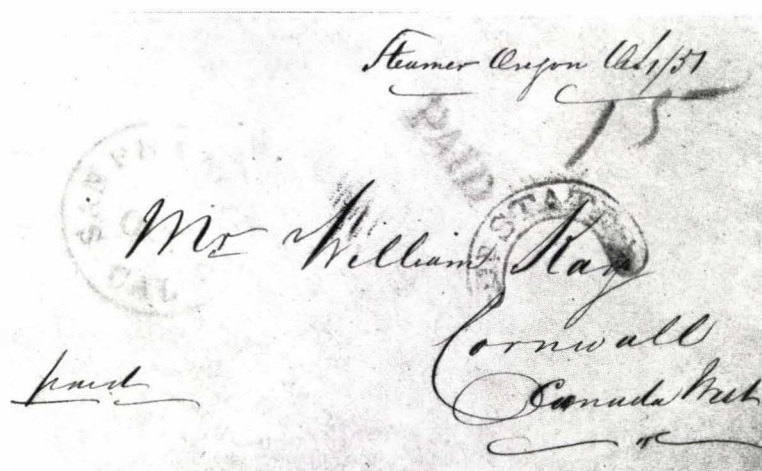 Steamer Oregon Oct 1/51
15
PAID
SAN FRAN
CAL
STATES
Mr William Kay
Cornwall
Canada West
paid